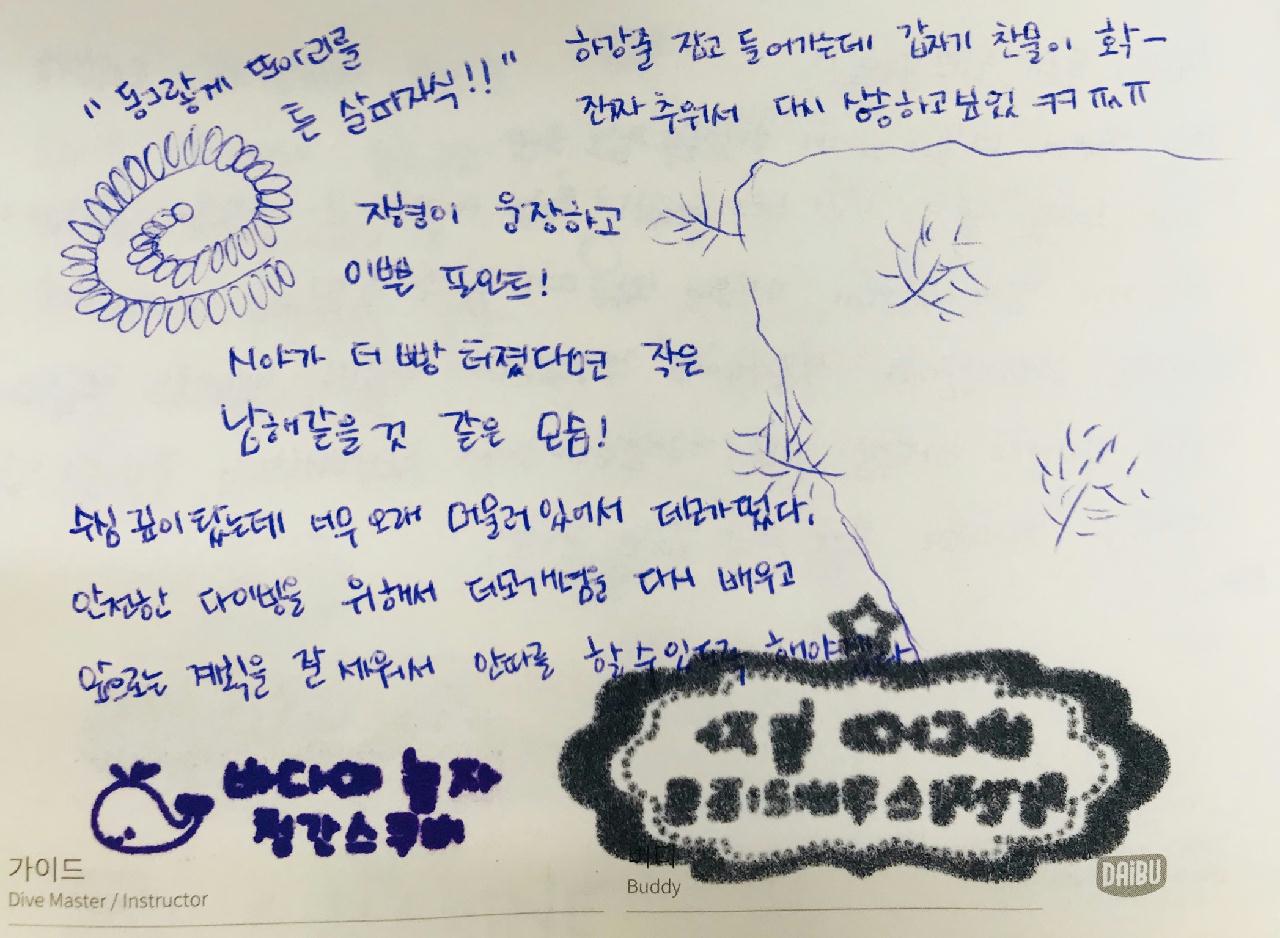 "동그랗게 또아리를
튼 살파자식!!"
하강줄 잡고 들어가는데 갑자기 찬물이 확-
진짜 추워서 다시 상승하고싶었 ㅋㅋ ㅠㅅㅠ
지형이 웅장하고
이쁜 포인트!
시야가 더 빵 터졌다면 작은
남해같을 것 같은 모습!
수심 깊이 탔는데 너무 오래 머물러 있어서 데코가 떴다!
안전한 다이빙을 위해서 데코개념을 다시 배우고
앞으로는 계획을 잘 세워서 안따를 할 수 있도록 해야
바다야 놀자
정간스쿠버
가이드
Dive Master / Instructor
Buddy
DAiBU